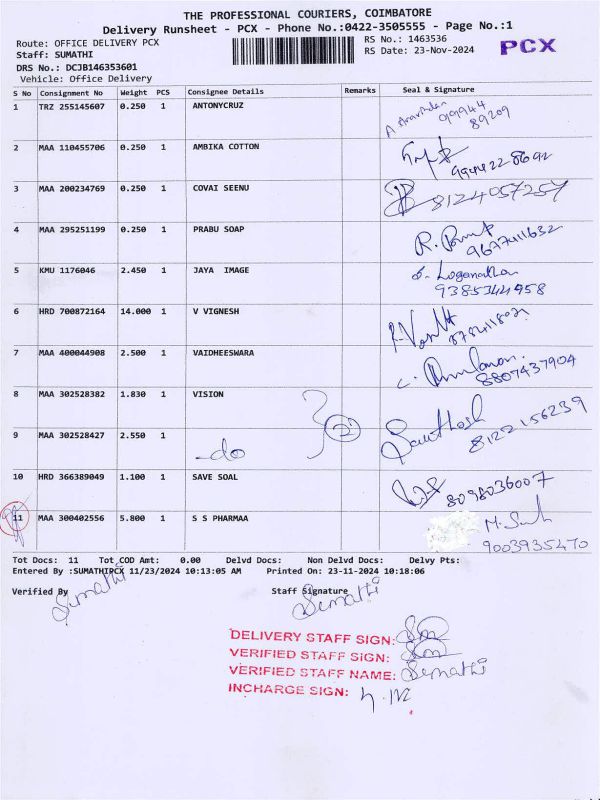 THE PROFESSIONAL COURIERS, COIMBATORE
Delivery Runsheet - PCX - Phone No.:0422-3505555 - Page No.:1
Route: OFFICE DELIVERY PCX
RS No.: 1463536
PCX
Staff: SUMATHI
RS Date: 23-Nov-2024
DRS No.: DCJB146353601
Vehicle: Office Delivery
S No Consignment No Weight PCS Consignee Details Remarks Seal & Signature
1 TRZ 255145607 0.250 1 ANTONYCRUZ
89209
2 MAA 110455706 0.250 1 AMBIKA COTTON
9944228692
3 MAA 200234769 0.250 1 COVAI SEENU
8124057257
4 MAA 295251199 0.250 1 PRABU SOAP
9677411632
5 KMU 1176046 2.450 1 JAYA IMAGE
Loganathan
9385344958
6 HRD 700872164 14.000 1 V VIGNESH
7 MAA 400044908 2.500 1 VAIDHEESWARA
8807437904
8 MAA 302528382 1.830 1 VISION
2
Santhosh
8122156239
9 MAA 302528427 2.550 1
-do
10 HRD 366389049 1.100 1 SAVE SOAL
8098036007
11 MAA 300402556 5.800 1 S S PHARMAA
9003935470
Tot Docs: 11 Tot COD Amt: 0.00 Delvd Docs: Non Delvd Docs: Delvy Pts:
Entered By :SUMATHIPCX 11/23/2024 10:13:05 AM Printed On: 23-11-2024 10:18:06
Verified By
Sumathi
Staff Signature
Sumathi
DELIVERY STAFF SIGN:
VERIFIED STAFF SIGN:
VERIFIED STAFF NAME: Sumathi
INCHARGE SIGN: